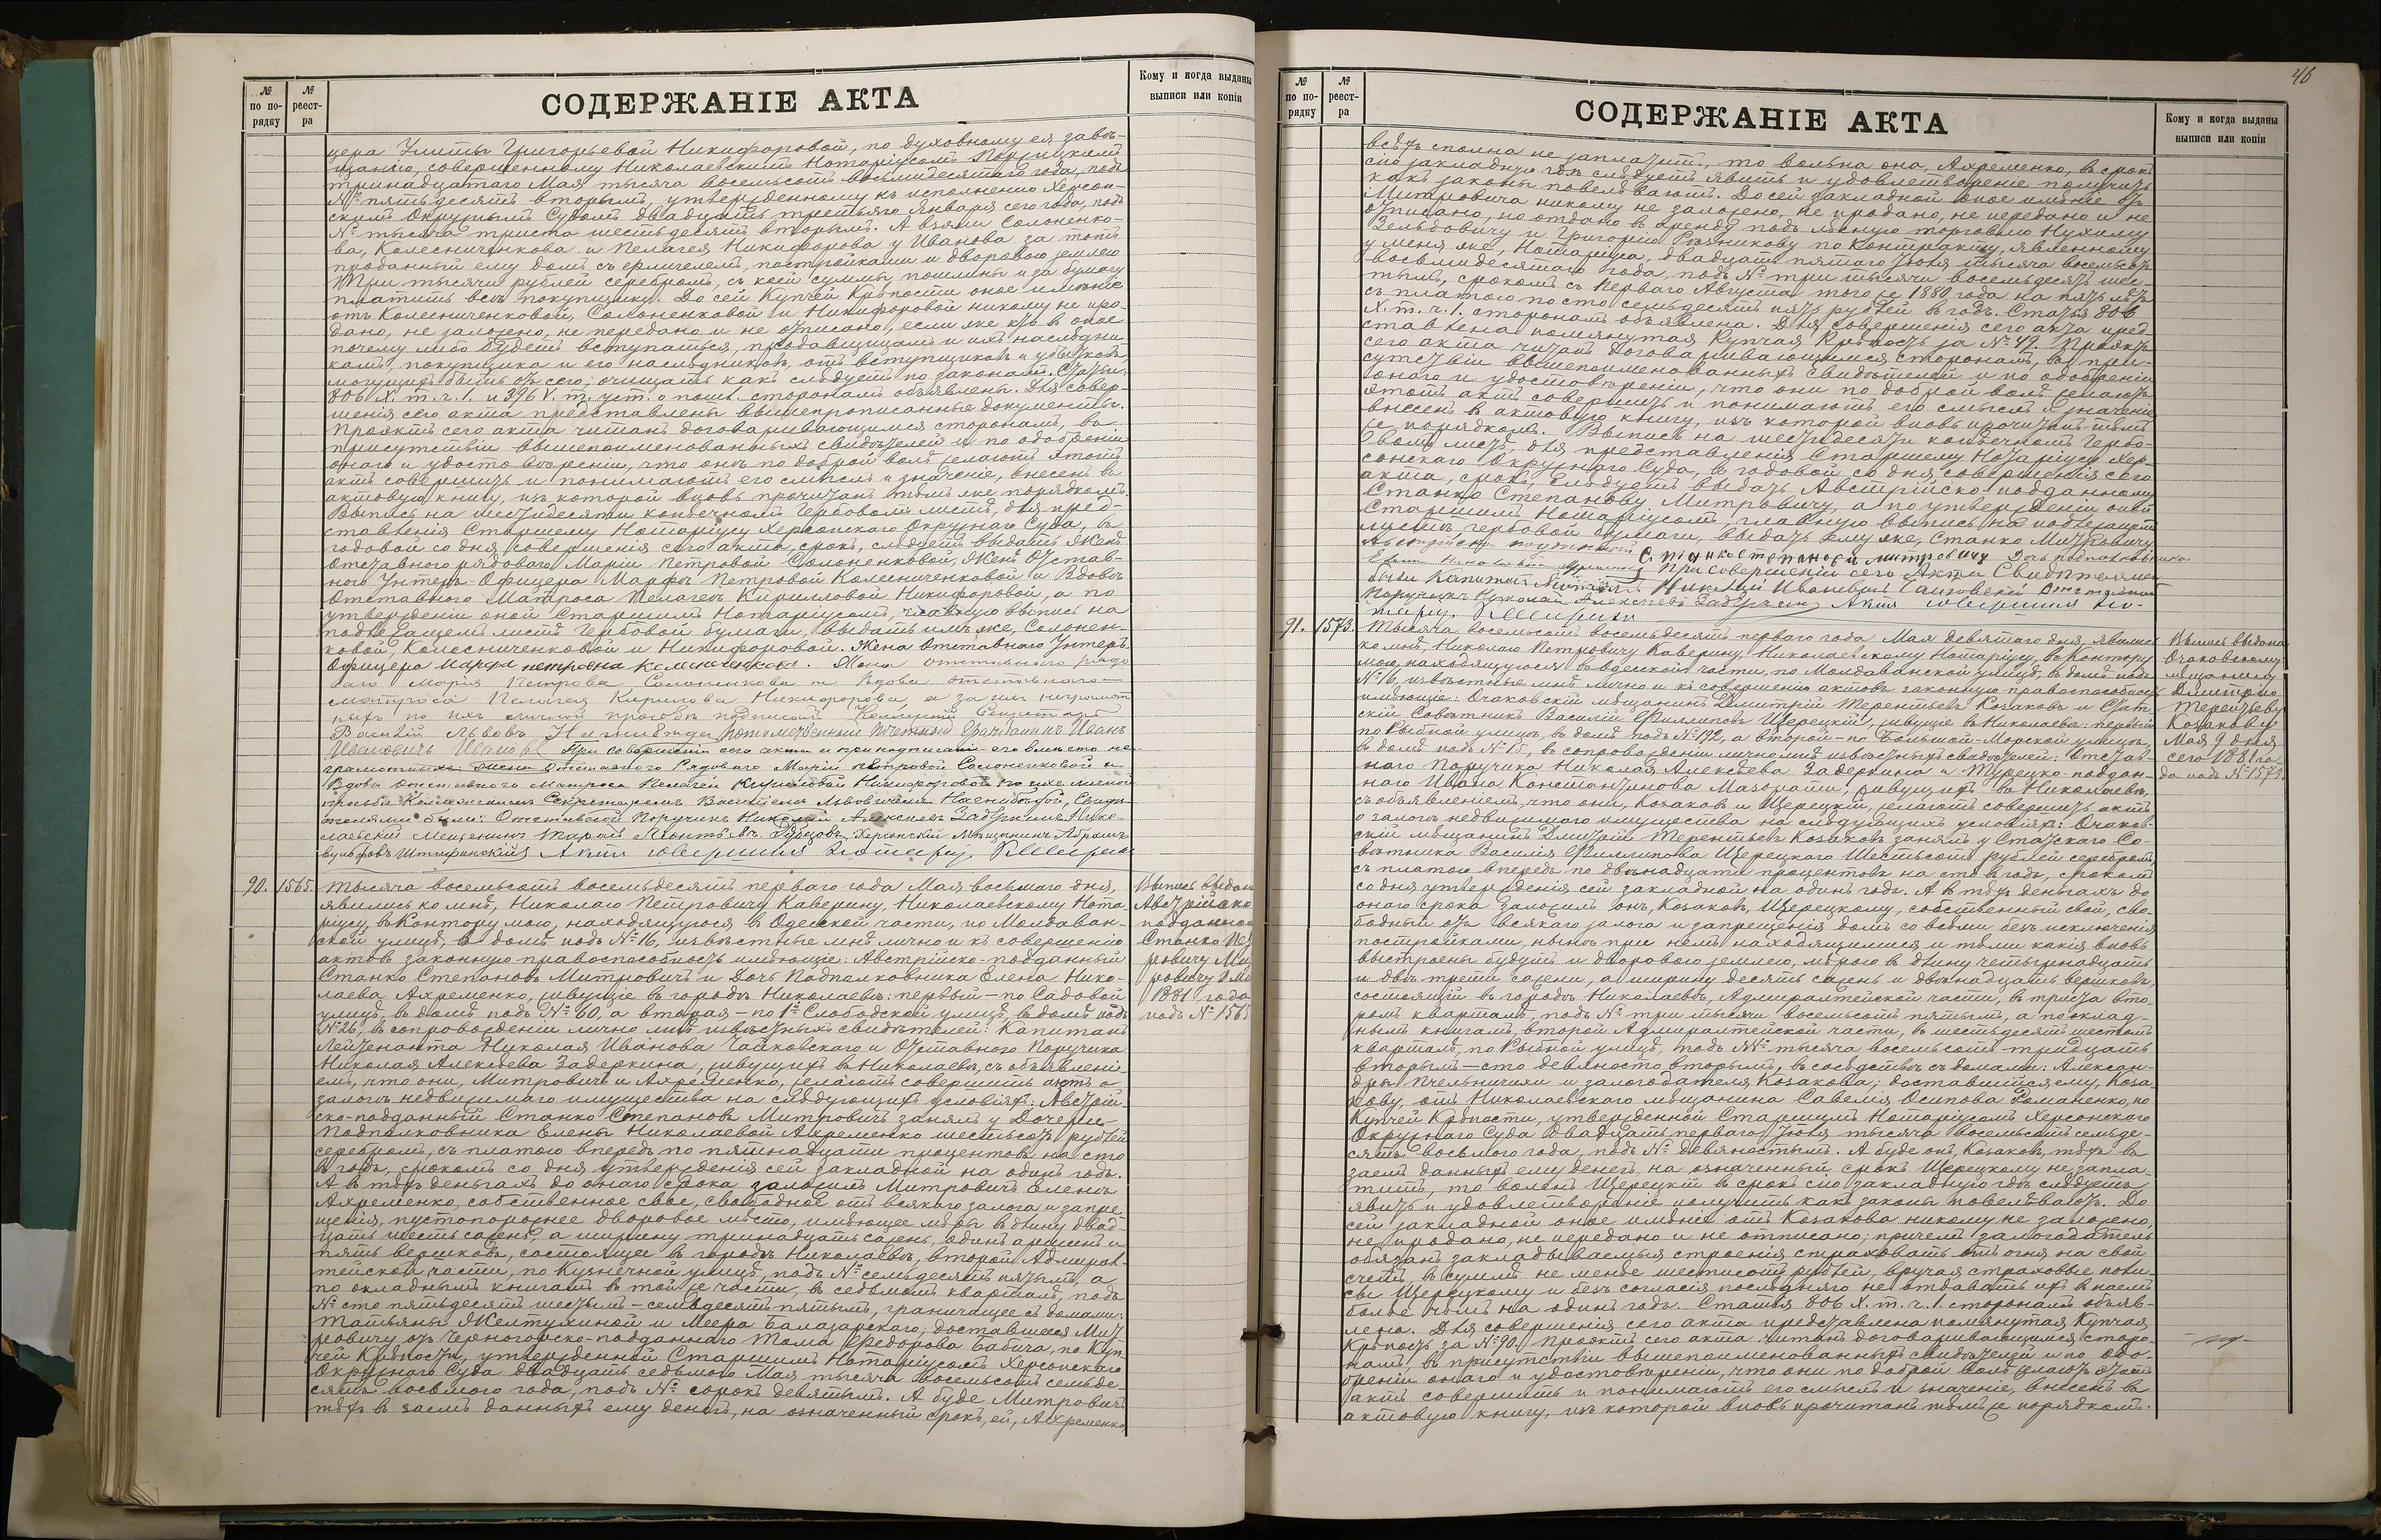 № по по-рядку
№ реест-ра
СОДЕРЖАНІЕ АКТА
Кому и когда выданы выписи или копіи
цера Улиты Григорьевой Никифоровой, по духовному ея завѣ-
щанію, совершенному Николаевскимъ Нотаріусомъ
тринадцатаго Мая тысяча восемьсотъ восьмидесятаго года, подъ
№ пятьдесятъ вторымъ, утвержденному къ исполненію Херсон-
скимъ Окружнымъ Судомъ двадцать третьяго Января сего года, подъ
№ тысяча триста шестьдесятъ вторымъ. А взяли Солоненко-
ва, Колесниченкова и Пелагея Никифорова у Иванова за тотъ
проданный ему домъ съ флигелемъ, постройками и дворовою землею
Три тысячи рублей серебромъ, съ коей суммы, пошлины и за бумагу
платить всѣ покупщику. До сей Купчей Крѣпости оное имѣніе
отъ Колесниченковой, Солоненковой и Никифоровой никому не про-
дано, не заложено, не передано и не отписано, если же кто въ оное
почему либо будетъ вступаться, продавщицамъ и ихъ наслѣдни-
камъ, покупщика и его наслѣдниковъ, отъ вступщиковъ и убытковъ,
могущихъ быть отъ сего, очищать какъ слѣдуетъ по законамъ. Статьи:
806 X. т. ч. 1. и 396 V. т. уст. о пошл. сторонамъ объявлены. Для совер-
шенія сего акта представлены вышепрописанные документы.
Проэктъ сего акта читанъ договаривающимся сторонамъ, въ
присутствіи вышепоименованныхъ свидѣтелей и по одобреніи
онаго и удостовѣреніи, что онѣ по доброй волѣ желаютъ этотъ
актъ совершить и понимаютъ его смыслъ и значеніе, внесенъ въ
актовую книгу, изъ которой вновь прочитанъ тѣмъ же порядкомъ.
Выпись на шестидесяти копѣечномъ гербовомъ листѣ, для пред-
ставленія Старшему Нотаріусу Херсонскаго Окружнаго Суда, въ
годовой со дня совершенія сего акта, срокъ, слѣдуетъ выдать Женѣ
Отставнаго рядоваго Маріи Петровой Солоненковой, Женѣ Отстав-
ного Унтеръ-Офицера Марфѣ Петровой Колесниченковой и Вдовѣ
Отставнаго Матроса Пелагеѣ Кирилловой Никифоровой, а по
утвержденіи оной Старшимъ Нотаріусомъ, главную выпись на
подлежащемъ листѣ Гербовой бумаги, выдать имъ же, Солонен-
ковой, Колесниченковой и Никифоровой. Жена Отставнаго Унтеръ
Офицера Марфа петровна Колесниченкова. Жена отставнаго рядо
ваго Марія Петрова Солоненкова и Вдова отставнаго
матроса Пелагея Кирилова Никифорова, а за ихъ неграмот
ныхъ по ихъ личной просьбѣ подписалъ Секретарь
Василій Львовъ потомственный Почетный Гражданинъ Иванъ
Ивановичъ Ивановъ При совершеніи сего акта и при подписаніи его вмѣсто не-
грамотныхъ жены Отставного Рядоваго Маріи Петровой Солоненковой и
Вдовы Отставного Матроса Пелагеи Кириловой Никифоровой по ихъ личной
просьбѣ Коллежскимъ Секретаремъ Василіемъ Львовичемъ Свидѣ-
телями были: Отставной Поручикъ Николай Алексѣевъ Задеркинъ, Нико-
лаевскій Мещанинъ Херсонскій Мѣщанинъ Абрамъ
Актъ совершилъ Нотаріусъ
90. 1565. Тысяча восемьсотъ восемьдесятъ перваго года Мая восьмаго дня,
явились ко мнѣ, Николаю Петровичу Каверину, Николаевскому Нота-
ріусу, въ Контору мою, находящуюся въ Одесской части, по Молдаван-
ской улицѣ, въ домѣ подъ № 16, извѣстные мнѣ лично и къ совершенію
актовъ законную правоспособность имѣющіе: Австрійско-подданный
Станко Степановъ Митровичъ и Дочь Подполковника Елена Нико-
лаева Ахременко, живущіе въ городѣ Николаевѣ: первый – по Садовой
улицѣ, въ домѣ подъ № 60, а вторая – по 1й Слободской улицѣ, въ домѣ подъ
№ 26, въ сопровожденіи лично мнѣ извѣстныхъ свидѣтелей: Капитанъ
Лейтенанта Николая Иванова Чайковскаго и Отставного Поручика
Николая Алексѣева Задеркина, живущихъ въ Николаевѣ, съ объявлені-
емъ, что они, Митровичъ и Ахременко, желаютъ совершить актъ о
залогѣ недвижимаго имущества на слѣдующихъ условіяхъ: Австрій-
ско-подданный Станко Степановъ Митровичъ занялъ у Дочери
Подполковника Елены Николаевой Ахременко шестьсотъ рублей
серебромъ, съ платою впередъ по пятнадцати процентовъ на сто
въ годъ, срокомъ со дня утвержденія сей закладной на одинъ годъ.
А въ тѣхъ деньгахъ до онаго срока заложилъ Митровичъ Еленѣ
Ахременко, собственное свое, свободное отъ всякаго залога и запре
щенія, пустопорожнее дворовое мѣсто, имѣющее мѣры въ длину двад-
цать шесть сажень, а ширину тринадцать сажень, одинъ аршинъ и
пять вершковъ, состоящее въ городѣ Николаевѣ, второй Адмирал-
тейской части, по Кузнечной улицѣ, подъ № семьдесятъ пятымъ, а
по окладнымъ книгамъ въ той же части, въ седьмомъ кварталѣ, подъ
№ сто пятьдесятъ шестымъ – семьдесятъ пятымъ, граничащее съ домами:
Татьяны Желтухиной и Меера Балазарскаго, доставшееся Мит-
ровичу отъ Черногорско-подданнаго Тома Федорова Бабича, по Куп-
чей Крѣпости, утвержденной Старшимъ Нотаріусомъ Херсонскаго
Окружнаго Суда двадцать седьмого Мая тысяча восемьсотъ семьде-
сятъ восьмого года, подъ № сорокъ девятымъ. А буде Митровичъ
тѣхъ въ заемъ данныхъ ему денегъ, на означенный срокъ, ей, Ахременко,
Выпись выдана
Австрійско
подданному
Станко
Ми
ровичу
1881 года
подъ № 1565
46
№ по по-рядку
№ реест-ра
СОДЕРЖАНІЕ АКТА
Кому и когда выданы выписи или копіи
всѣхъ сполна не заплатитъ, то вольна она, Ахременко, въ срокъ
сію закладную гдѣ слѣдуетъ явить и удовлетвореніе получить
какъ законы повелѣваютъ. До сей закладной оное имѣніе отъ
Митровича никому не заложено, не продано, не передано и не
отписано, но отдано въ аренду подъ лѣсную торговлю Нухиму
Зельдовичу и Григорію по Контракту, явленному
у меня же, Нотаріуса, двадцать пятаго Іюля тысяча восемьсотъ
восьмидесятаго года, подъ № три тысячи восемьдесятъ шес-
тымъ, срокомъ съ Перваго Августа того же 1880 года на пять лѣтъ
съ платою по сто семьдесятъ пять рублей въ годъ. Статья 806
X. т. ч. 1. сторонамъ объявлена. Для совершенія сего акта пред-
ставлена помянутая Купчая Крѣпость за № 49. Проэктъ
сего акта читанъ договаривающимся сторонамъ, въ при-
сутствіи вышепоименованныхъ свидѣтелей и по одобреніи
онаго и удостовѣреніи, что они по доброй волѣ желаютъ
этотъ актъ совершить и понимаютъ его смыслъ и значеніе
внесенъ въ актовую книгу, изъ которой вновь прочитанъ тѣмъ
же порядкомъ. Выпись на шестидесяти копѣечномъ Гербо-
вомъ листѣ, для представленія Старшему Нотаріусу Хер-
сонскаго Окружнаго Суда, въ годовой, со дня совершенія сего
акта, срокъ, слѣдуетъ выдать Австрійско-подданному
Станко Степанову Митровичу, а по утвержденіи оной
Старшимъ Нотаріусомъ, главную выпись на подлежащемъ
листѣ гербовой бумаги, выдать ему же, Станко Митровичу
Австрійско подданный Станко Степановъ митровичъ Дочь подполковника
При совершеніи сего Акта Свидѣтелями
были Капитанъ Николай Ивановъ Чайковскій Отставной
Поручикъ Николай Алексѣевъ Задеркинъ Актъ совершилъ Но-
таріусъ
91. 1573. Тысяча восемьсотъ восемьдесятъ перваго года Мая девятаго дня, явились
ко мнѣ, Николаю Петровичу Каверину, Николаевскому Нотаріусу, въ Контору
мою, находящуюся въ Одесской части, по Молдаванской улицѣ, въ домѣ подъ
№ 16, извѣстные мнѣ лично и къ совершенію актовъ законную правоспособность
имѣющіе: Очаковскій мѣщанинъ Дмитрій Терентьевъ Козаковъ и Стат-
скій Совѣтникъ Василій Филлиповъ Щерецкій, живущіе въ Николаевѣ: первый
по Рыбной улицѣ, въ домѣ подъ № 192, а второй – по Большой-Морской улицѣ,
въ домѣ подъ № 15, въ сопровожденіи лично мнѣ извѣстныхъ свидѣтелей: Отстав-
наго Поручика Николая Алексѣева Задеркина и Турецко-поддан-
наго Ивана Константинова Мазораки, живущихъ въ Николаевѣ,
съ объявленіемъ, что они, Козаковъ и Щерецкій, желаютъ совершить актъ
о залогѣ недвижимаго имущества на слѣдующихъ условіяхъ: Очаков-
скій мѣщанинъ Дмитрій Терентьевъ Козаковъ занялъ у Статскаго Со-
вѣтника Василія Филиппова Щерецкаго Шестьсотъ рублей серебромъ,
съ платою впередъ по двѣнадцати процентовъ на сто въ годъ, срокомъ
со дня утвержденія сей закладной на одинъ годъ. А въ тѣхъ деньгахъ до
онаго срока заложилъ онъ, Козаковъ, Щерецкому, собственный свой, сво-
бодный отъ всякаго залога и запрещенія домъ со всѣми безъ исключенія
постройками, нынѣ при немъ находящимися и тѣми какія вновь
выстроены будутъ и дворовою землею, мѣрою въ длину четырнадцать
и двѣ трети сажени, а ширину десять сажень и двѣнадцать вершковъ,
состоящій въ городѣ Николаевѣ, Адмиралтейской части, въ триста вто-
ромъ кварталѣ, подъ № три тысячи восемьсотъ пятымъ, а по оклад-
нымъ книгамъ, второй Адмиралтейской части, въ шестьдесятъ шестомъ
кварталѣ, по Рыбной улицѣ, подъ №№ тысяча восемьсотъ тридцать
вторымъ – сто девяносто вторымъ, въ сосѣдствѣ съ домами: Алексан-
дры Пчельничихи и залогодателя Козакова; доставшійся ему, Коза-
кову, отъ Николаевскаго мѣщанина Савелія Осипова Романенко, по
Купчей Крѣпости, утвержденной Старшимъ Нотаріусомъ Херсонскаго
Окружнаго Суда двадцать перваго Іюня тысяча восемьсотъ семьде-
сятъ восьмого года, подъ № девяностымъ. А буде онъ, Козаковъ, тѣхъ въ
заемъ данныхъ ему денегъ, на означенный срокъ Щерецкому не запла-
титъ, то воленъ Щерецкій въ срокъ сію закладную гдѣ слѣдуетъ
явить и удовлетвореніе получить какъ законы повелѣваютъ. До
сей закладной оное имѣніе отъ Козакова никому не заложено,
не продано, не передано и не отписано; причемъ залогодатель
обязанъ закладываемыя строенія страховать отъ огня на свой
счетъ, въ суммѣ не менѣе шестисотъ рублей, вручая страховые поли-
сы Щерецкому и безъ согласія послѣдняго не отдавать ихъ въ наемъ
болѣе чѣмъ на одинъ годъ. Статья 806 X. т. ч. 1. сторонамъ объяв-
лена. Для совершенія сего акта представлена помянутая Купчая
Крѣпость за № 90. Проэктъ сего акта читанъ договаривающимся сторо-
намъ, въ присутствіи вышепоименованныхъ свидѣтелей и по одо-
бреніи онаго и удостовѣреніи, что они по доброй волѣ желаютъ этотъ
актъ совершить и понимаютъ его смыслъ и значеніе, внесенъ въ
актовую книгу, изъ которой вновь прочитанъ тѣмъ же порядкомъ.
Выпись выдана
Очаковскому
мѣщанину
Дмитрію
Терентьеву
Козакову
Мая 9 дня
сего 1881 го-
да подъ № 1573.